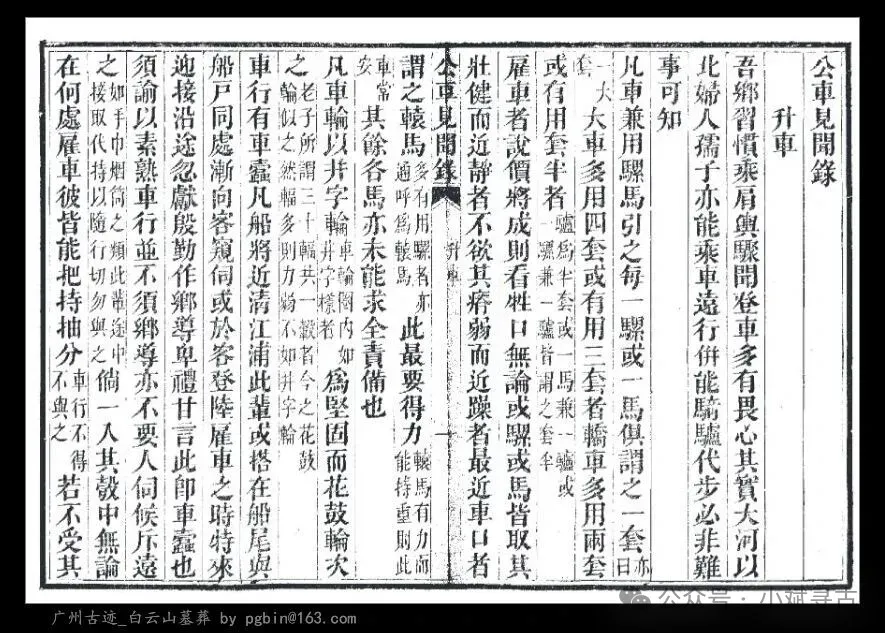 公車見聞錄
升車
吾鄉習慣乘肩輿驟聞登車多有畏心其實大河以
北婦人孺子亦能乘車遠行併能騎驢代步必非難
事可知
凡車兼用騾馬引之每一騾或一馬俱謂之一套亦曰
大套大車多用四套或有用三套者轎車多用兩套
或有用套半者驢為半套或一馬兼一驢或一騾兼一驢皆謂之套半
雇車者說價將成則看牲口無論或騾或馬皆取其
壯健而近靜者不欲其瘠弱而近躁者最近車口者
公車見聞錄 升車 一
謂之轅馬多有用騾者亦通呼為轅馬此最要得力轅馬有力而能持重則此
車常安其餘各馬亦未能求全責備也
凡車輪以井字輪車輪圈内如井字樣者為堅固而花鼓輪次
之老子所謂三十輻共一轂者今之花鼓輪似之然輻多則力弱不如井字輪
車行有車蠹凡船將近清江浦此輩或搭在船尾與
船戶同處漸向客窺伺或於客登陸雇車之時特來
迎接沿途忽獻殷勤作鄉導卑禮甘言此卽車蠹也
須諭以素熟車行並不須鄉導亦不要人伺候斥遠
之如手巾烟筒之類此輩途中接取代持以隨行切勿與之倘一入其彀中無論
在何處雇車彼皆能把持抽分車行不得不與之若不受其
公众号·小斌寻古
广州古迹_白云山墓葬 by pgbin@163.com